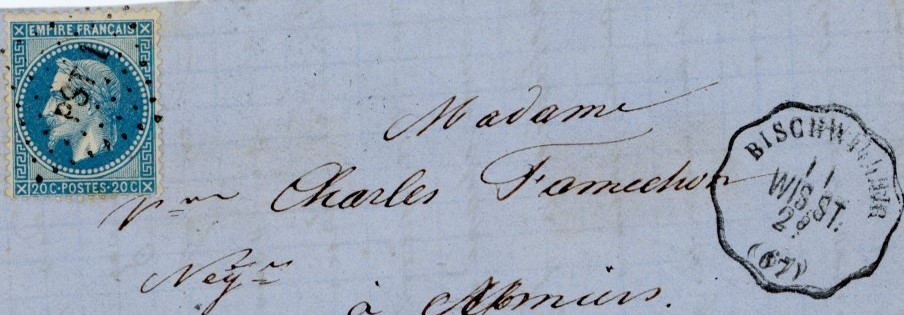 EMPIRE FRANÇAIS
20C·POSTES·20C
Madame
Charles Famechon
Neg.te
à Amiens.
BISCHWILLER
11
WIS ST.
28
(67)